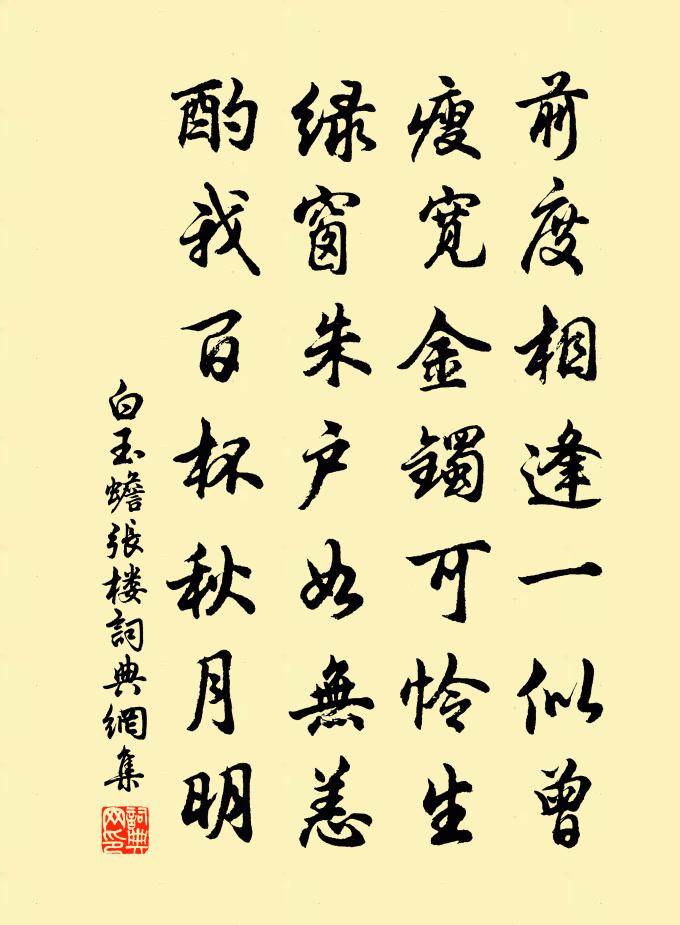 前度相逢一似曾
瘦寬金鐲可怜生
緑窗朱户如無恙
酌我百杯秋月明
白玉蟾張楼詞典網集
詞典网印